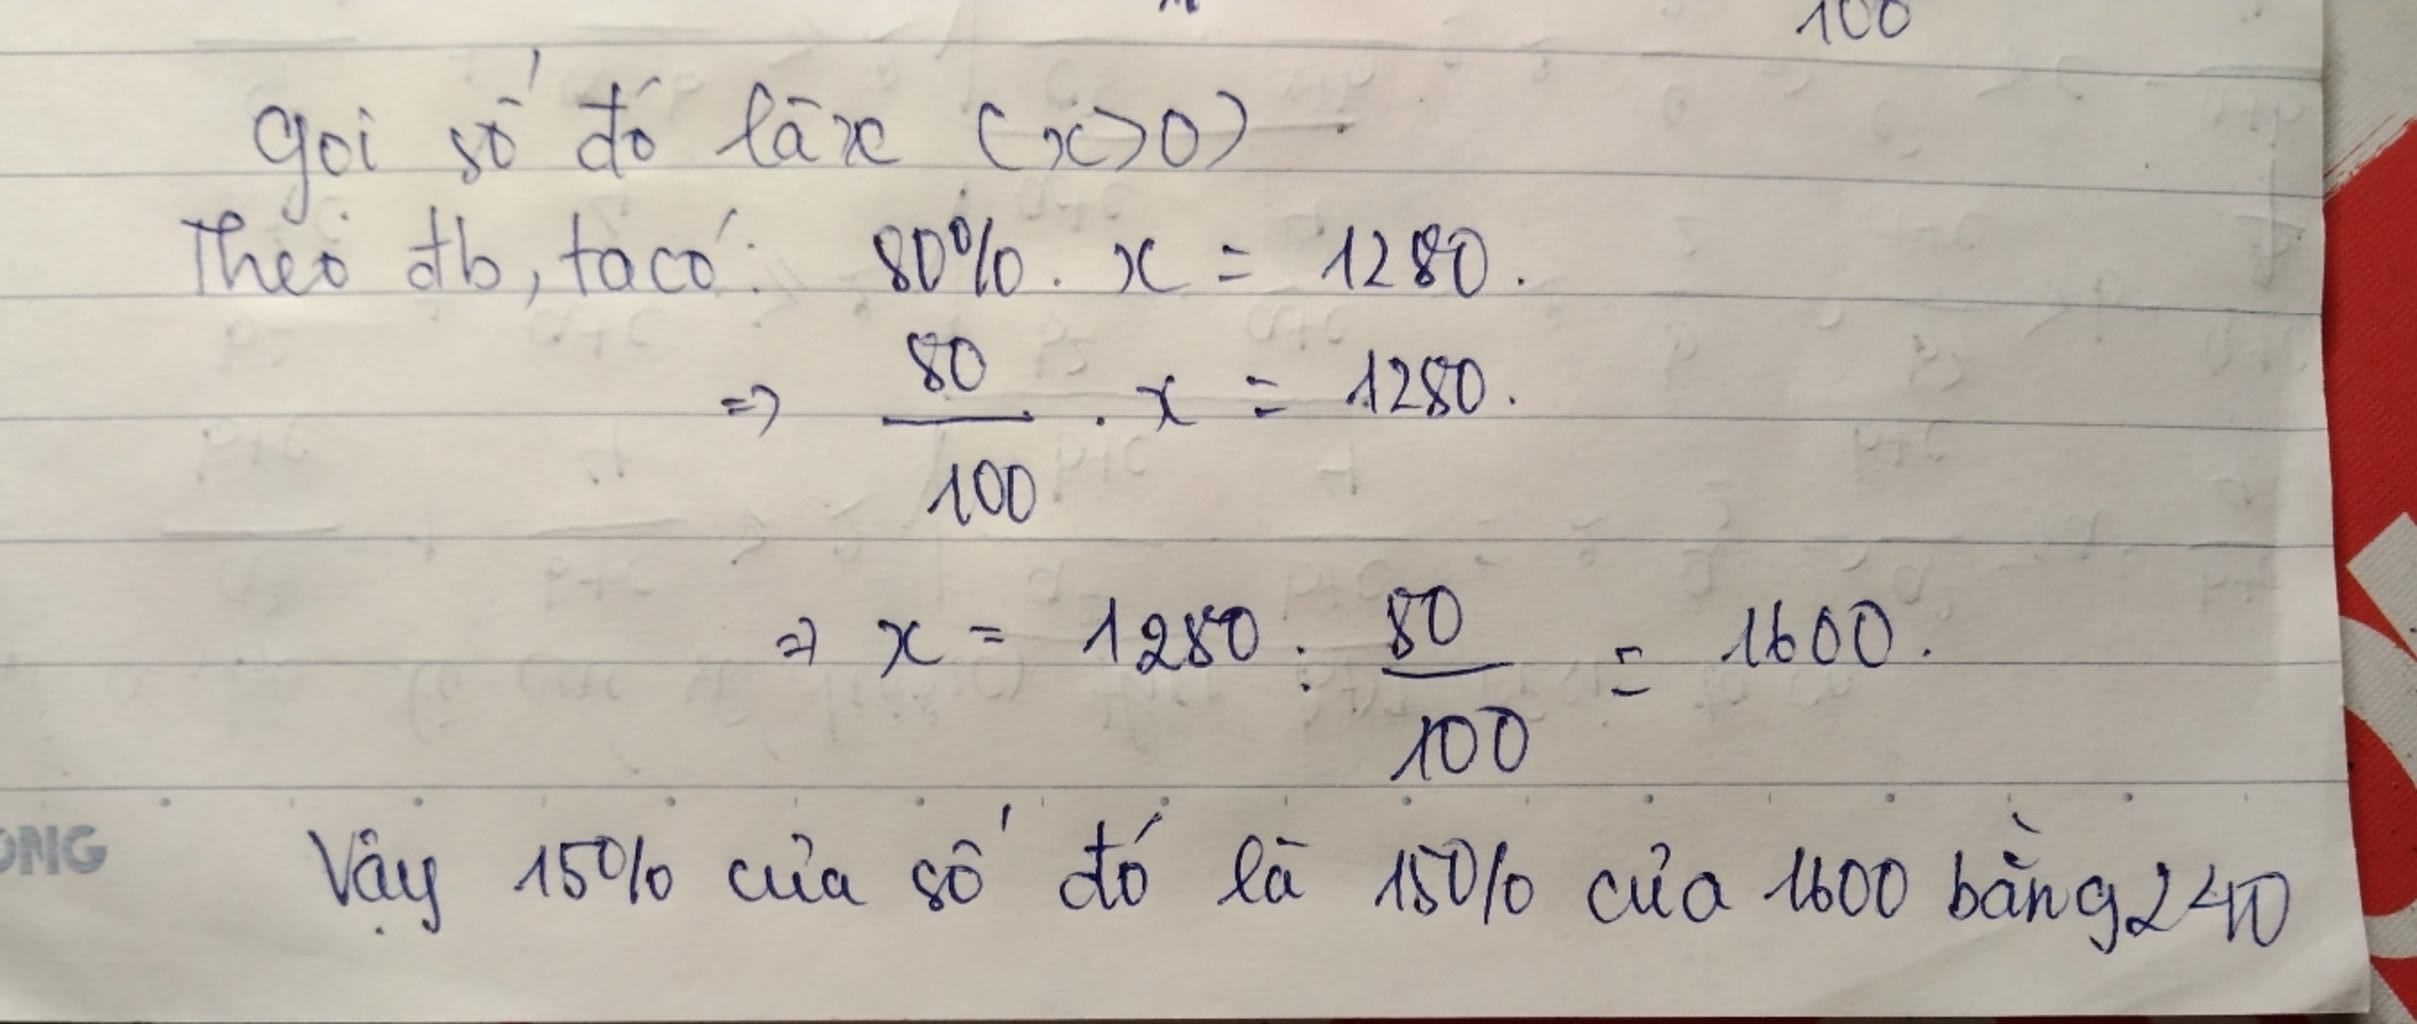 100
Gọi số đó là x (x>0)
Theo đb, ta có: 80% . x = 1280.
=> 80/100 . x = 1280.
=> x = 1280 : 80/100 = 1600.
ONG
Vậy 15% của số đó là 15% của 1600 bằng 240